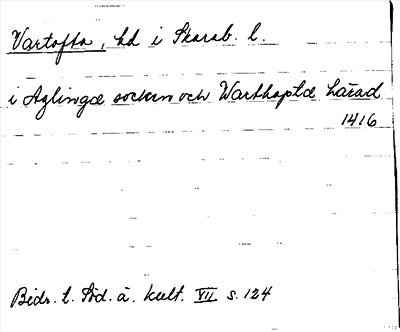 Vartofta, hd i Skarab. l.
i Aslinga socken och Warthapta härad
1416
Bidr. t. Söd. ä. kult. VII s. 124